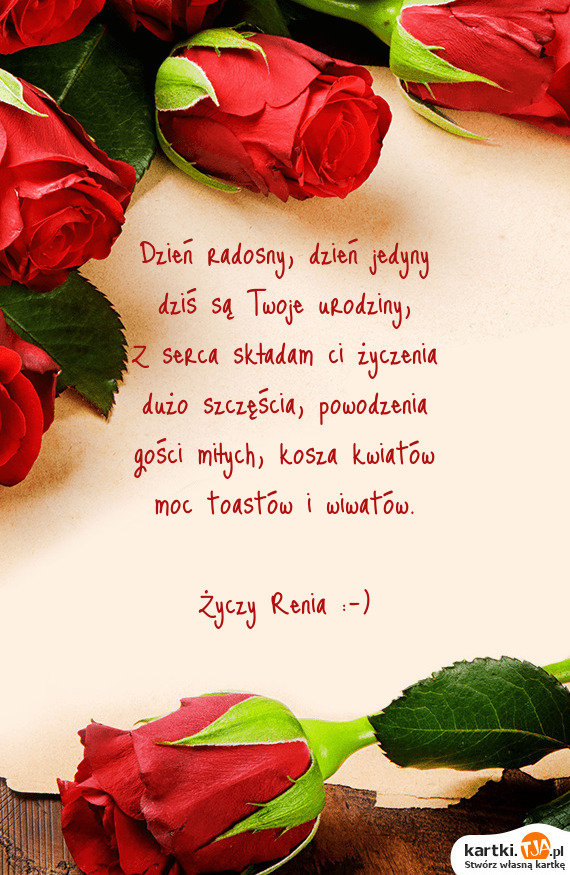 Dzień radosny, dzień jedyny
dziś są Twoje urodziny,
Z serca składam ci życzenia
dużo szczęścia, powodzenia
gości miłych, kosza kwiatów
moc toastów i wiwatów.
Życzy Renia :-)
kartki.TJA.pl
Stwórz własną kartkę